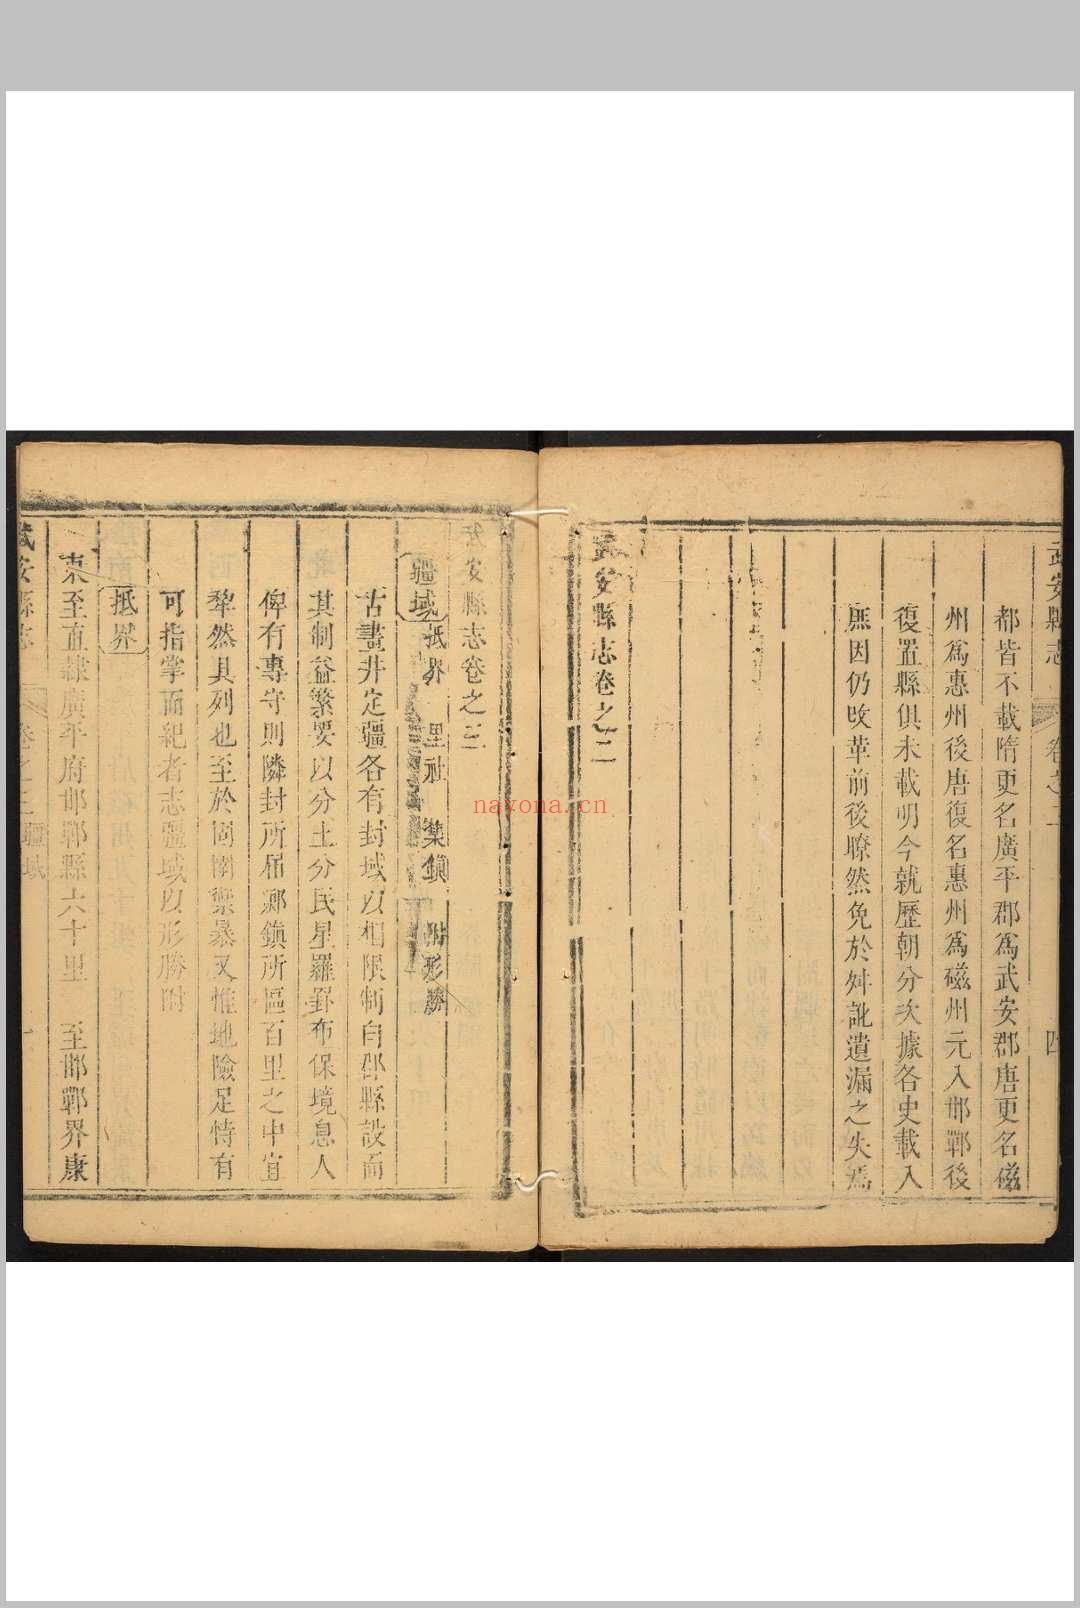 武安縣志
卷之二
四
都皆不載隋更名廣平郡爲武安郡唐更名磁
州爲惠州後唐復名惠州爲磁州元入邯鄲後
復置縣俱未載明今就歷朝分次據各史載入
庶因仍改革前後瞭然免於舛訛遺漏之失焉
武安縣志卷之二
武安縣志卷之三
疆域 抵界 里社 集鎮 附形勝
古畫井定疆各有封域以相限制自郡縣設而
其制益繁要以分土分民星羅棊布保境息人
俾有專守則隣封所屆鄉鎮所區百里之中宜
犂然具列也至於固圉禦暴又惟地險足恃有
可指掌而紀者志疆域以形勝附
抵界
東至直隸廣平府邯鄲縣六十里 至邯鄲界康
武安縣志
卷之三
疆域
一
nayona.cn